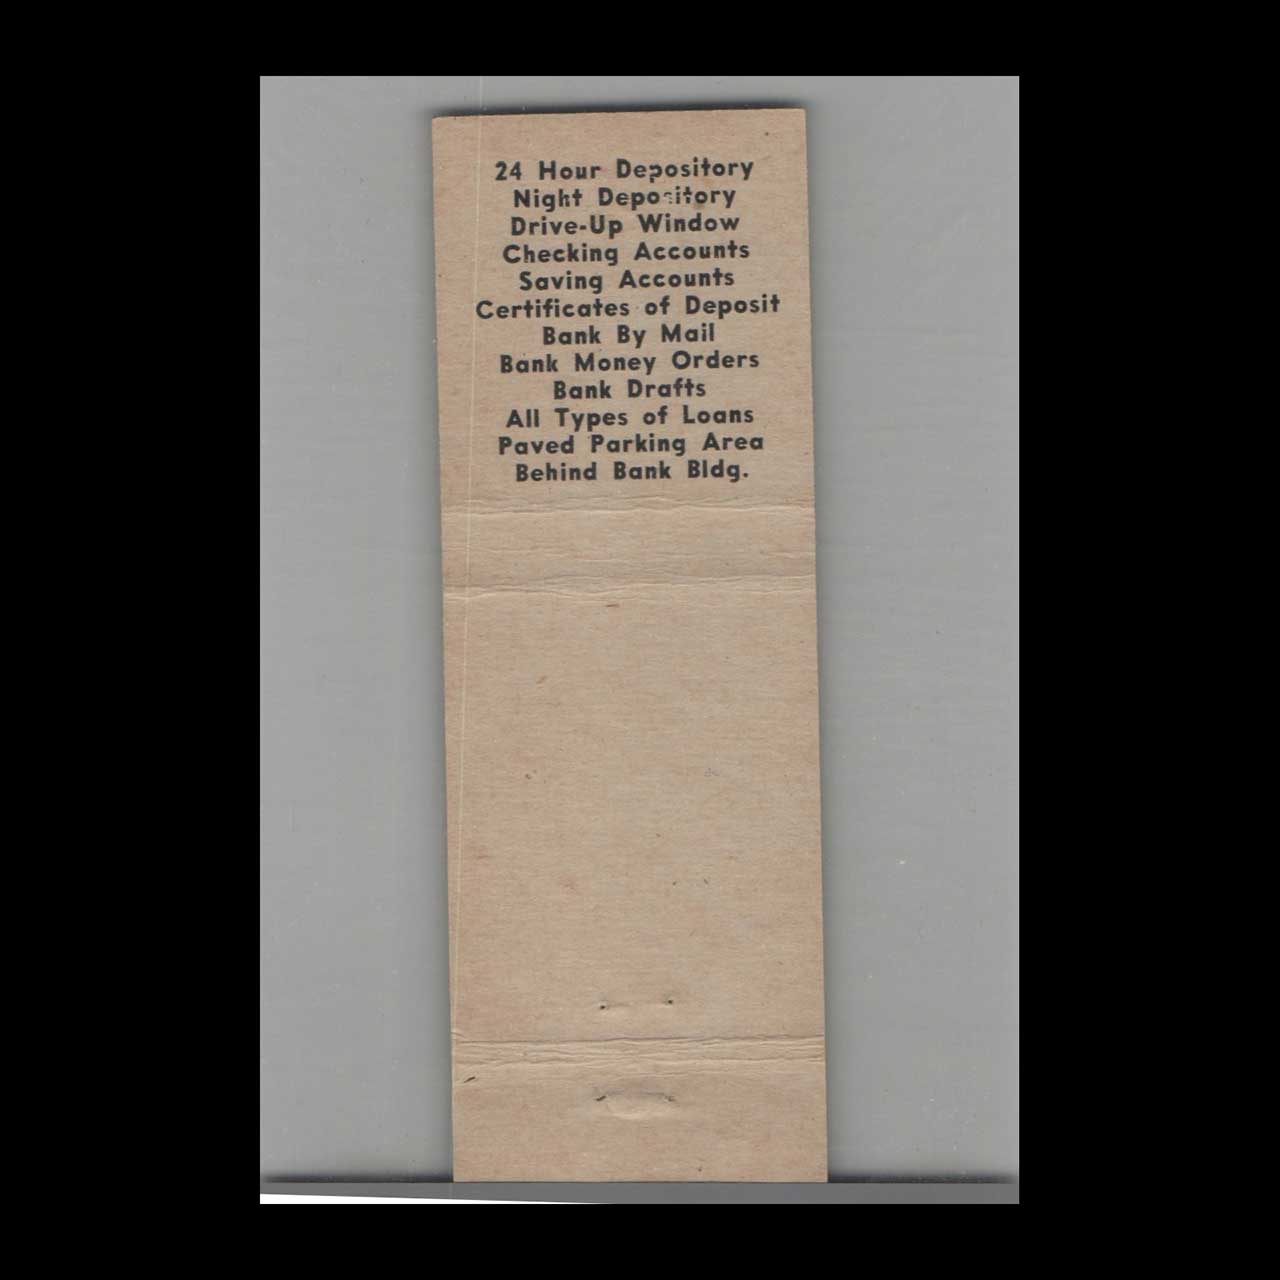 24 Hour Depository
Night Depository
Drive-Up Window
Checking Accounts
Saving Accounts
Certificates of Deposit
Bank By Mail
Bank Money Orders
Bank Drafts
All Types of Loans
Paved Parking Area
Behind Bank Bldg.